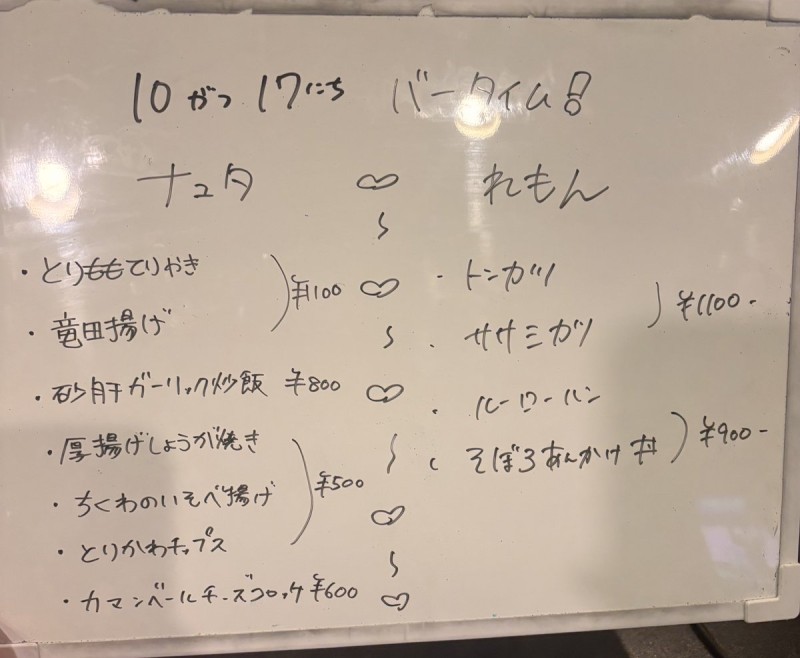 10がつ17にち バータイム!
ナュタ
れもん
・とりももてりやき
・竜田揚げ
¥1100
・砂肝ガーリック炒飯 ¥800
・厚揚げしょうが焼き
・ちくわのいそべ揚げ
・とりかわチップス
¥500
・カマンベールチーズコロッケ ¥600
・トンカツ
・ササミカツ
¥1100-
・ルーローハン
・そぼろあんかけ丼
¥900-